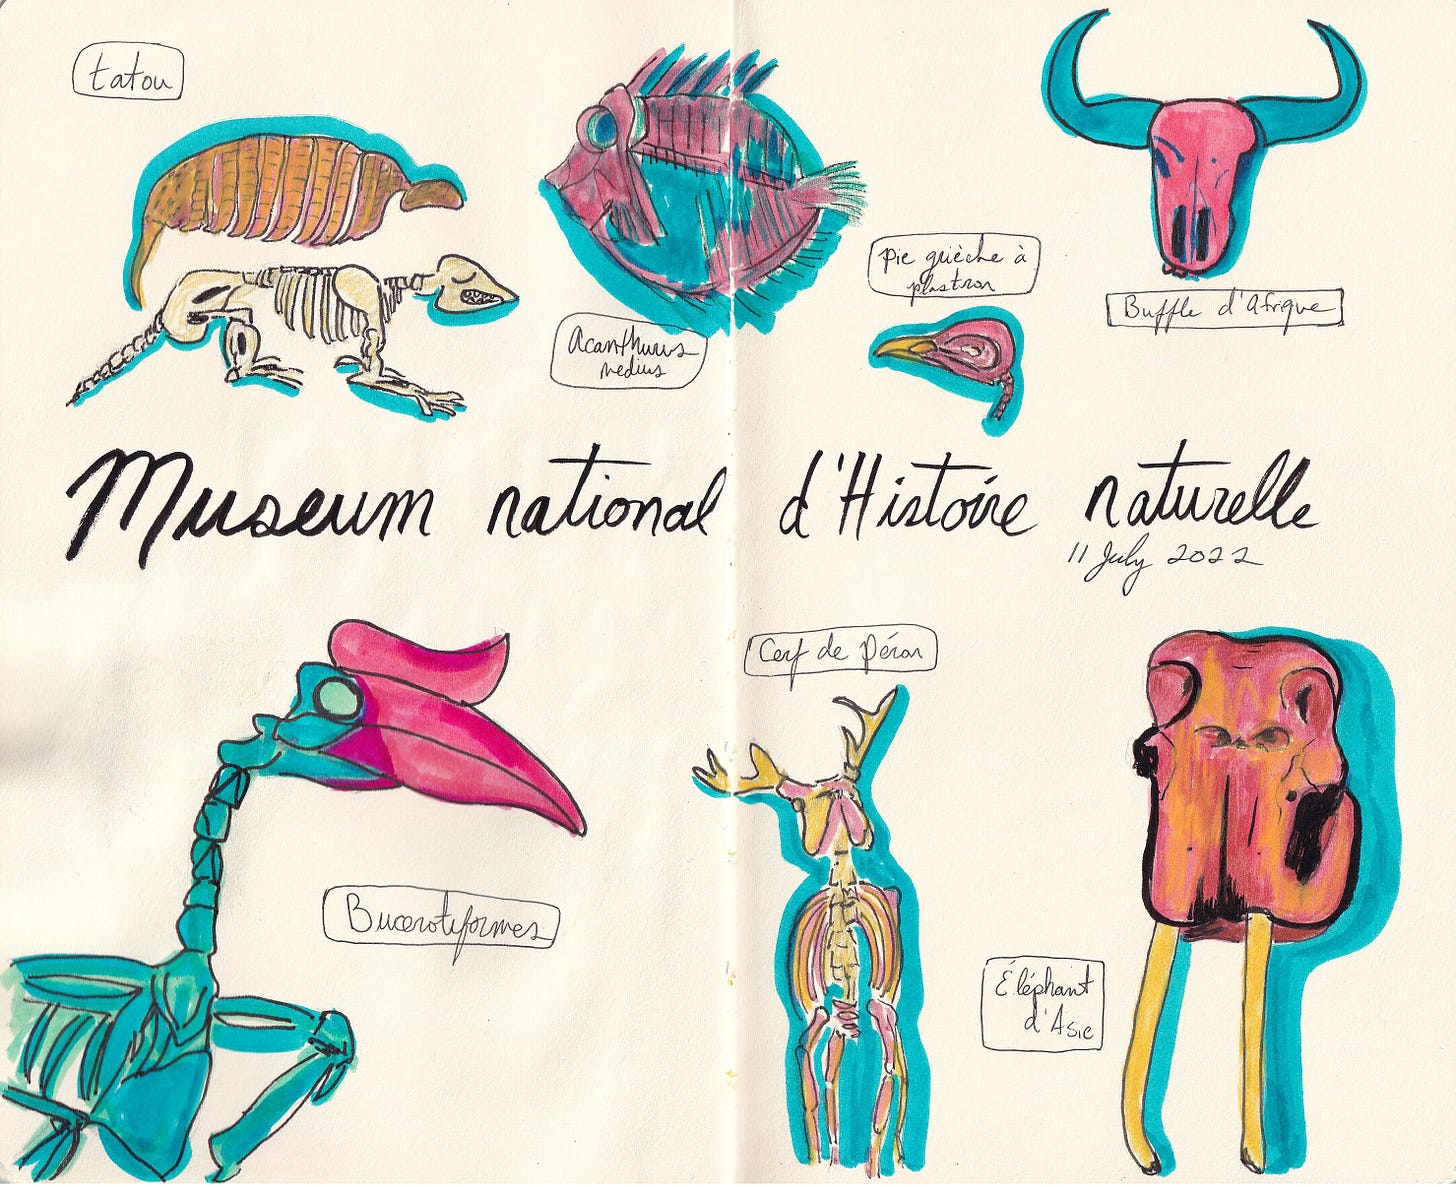 tatou
Acanthurus
medius
pie grièche à
plastron
Buffle d'Afrique
Museum national d'Histoire naturelle
11 July 2022
Bucerotiformes
Cerf de Péron
Éléphant
d'Asie